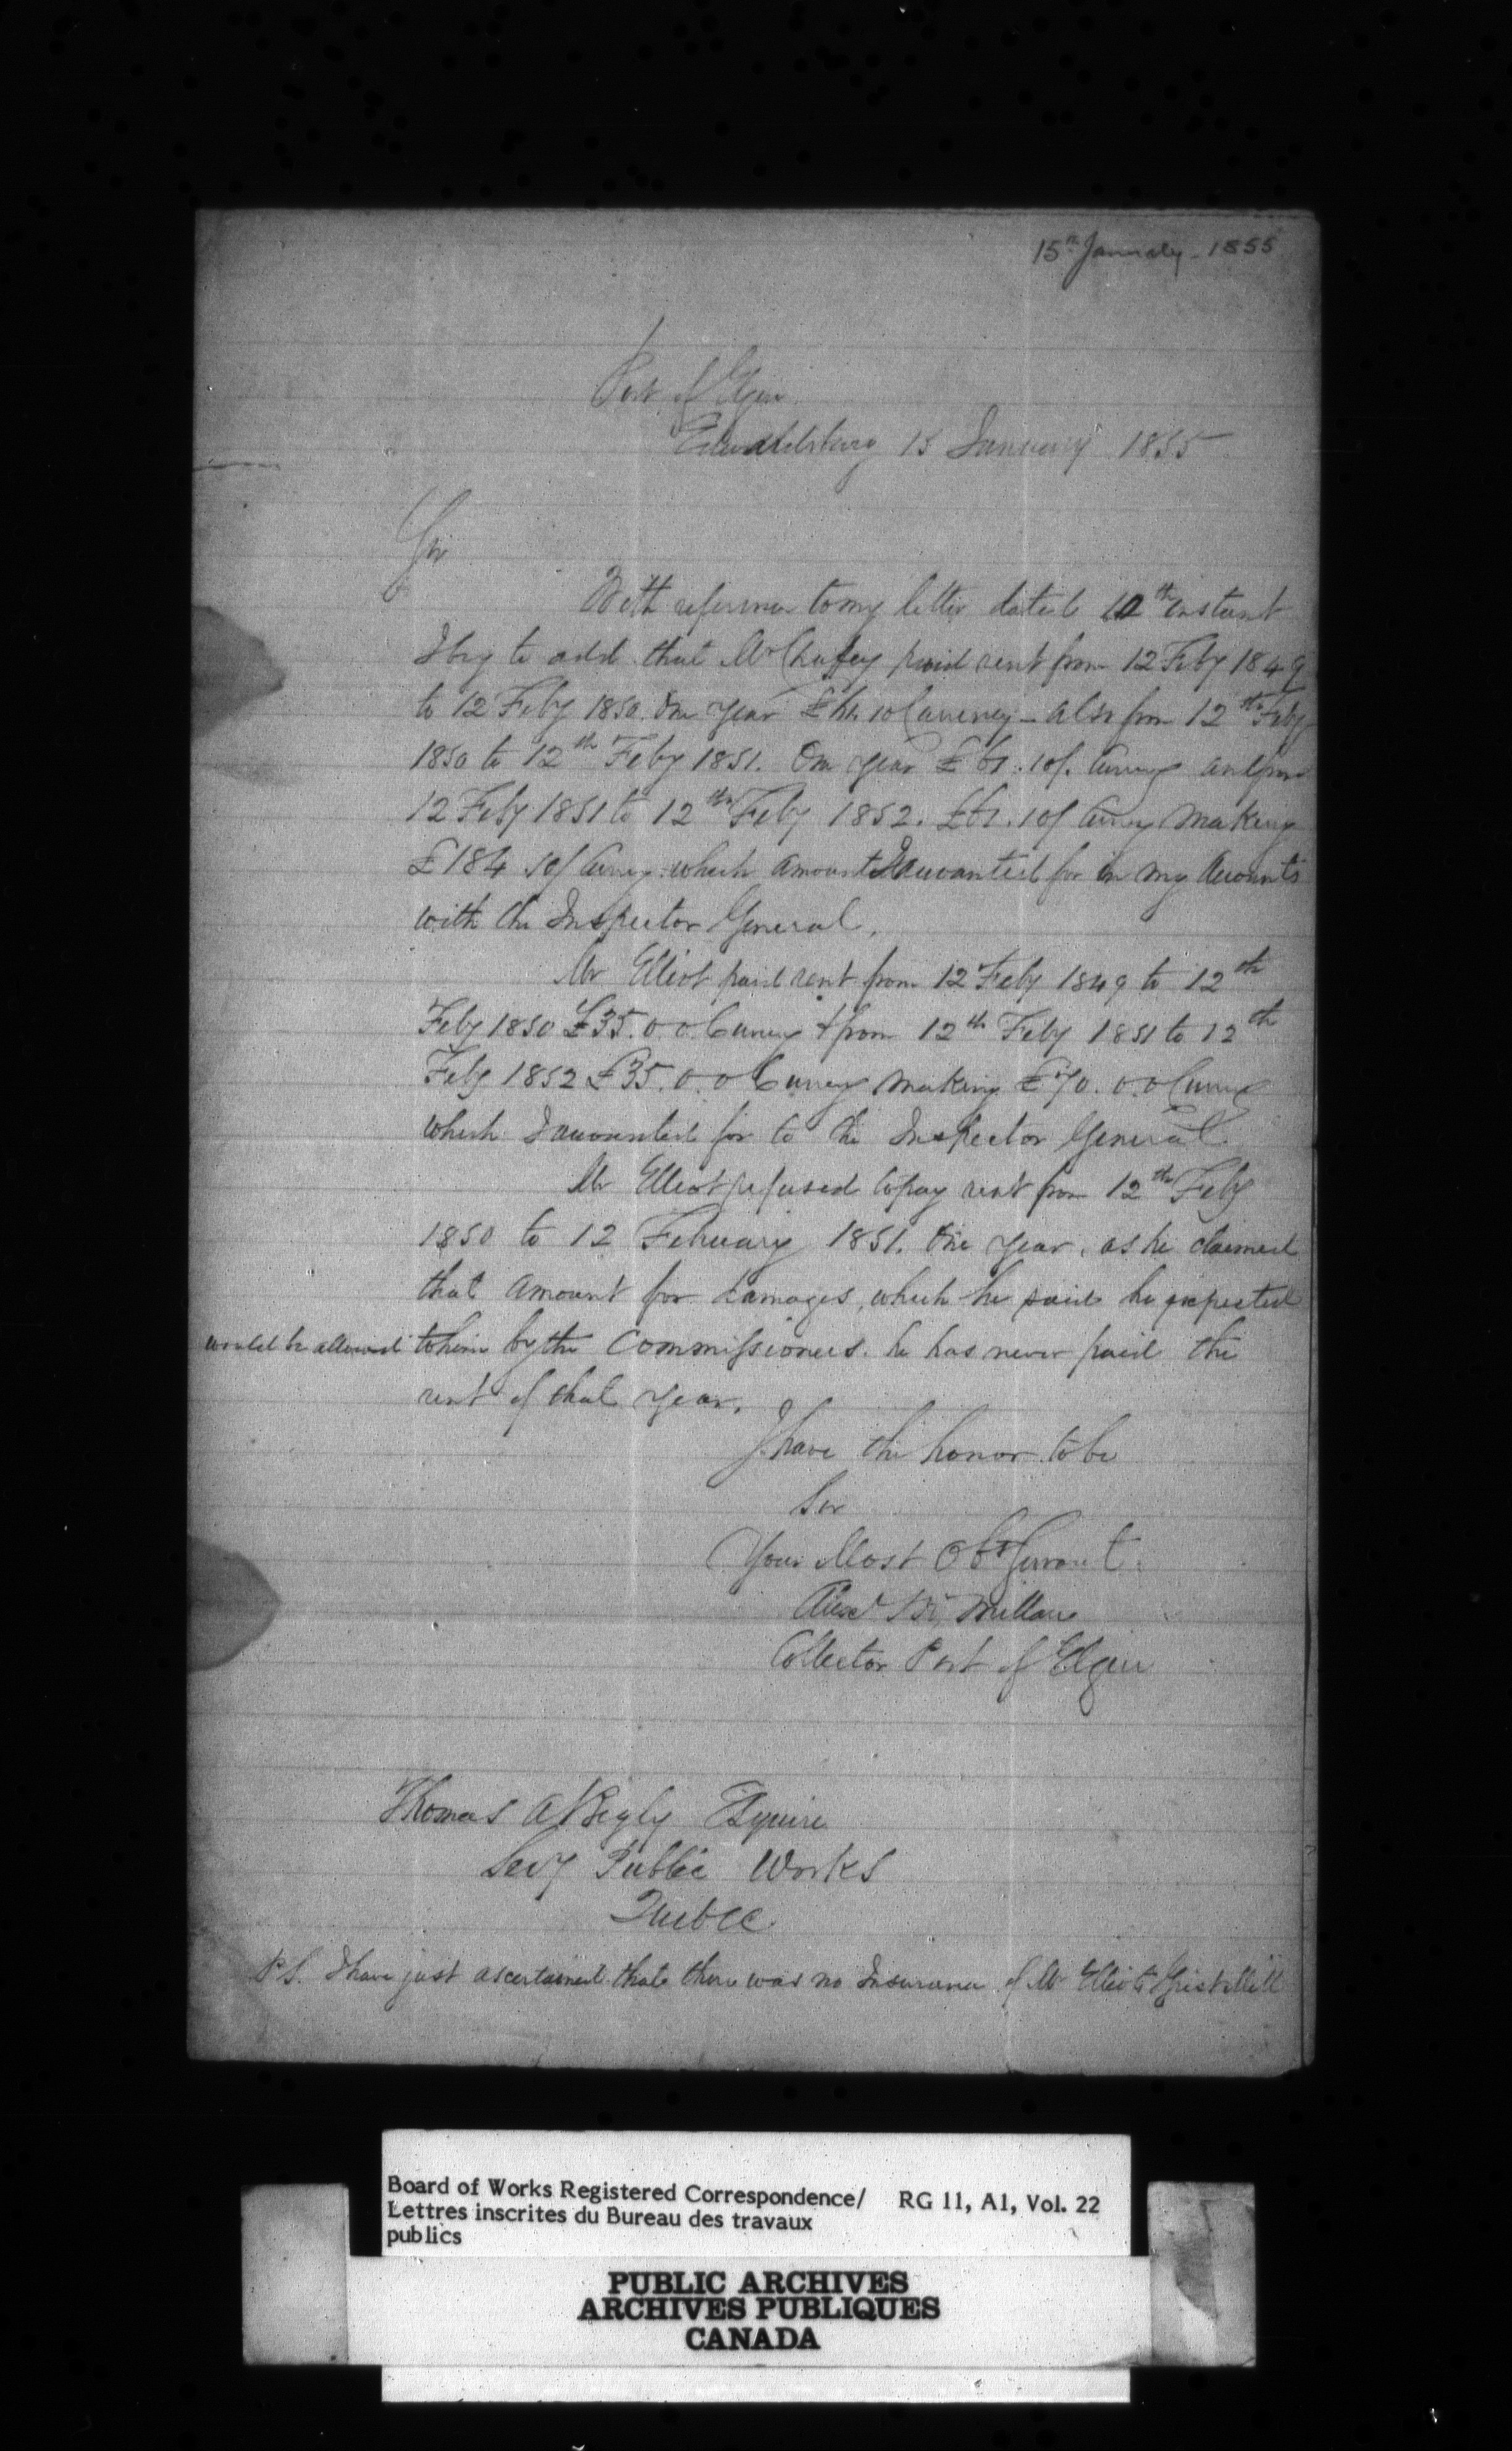 15th January - 1855
Port of Elgin
Edwardsburg 15 January 1855
Sir
With reference to my letter dated 10th instant
I beg to add that Mr Chafey paid rent from 12 Feby 1849
to 12 Feby 1850. One year £ 10 Currency - also from 12th Feby
1850 to 12th Feby 1851. One year £61.10/. Curry and from
12 Feby 1851 to 12th Feby 1852. £61.10/ Curry making
£184.10/ Curry. which amount I accounted for in my Accounts
with the Inspector General.
Mr Elliot paid rent from 12 Feby 1849 to 12th
Feby 1850 £35.0.0. Currency & from 12th Feby 1851 to 12th
Feby 1852 £35.0.0 Currcy making £70.0.0 Currcy
which I accounted for to the Inspector General.
Mr Elliot refused to pay rent from 12th Feby
1850 to 12 February 1851. One year, as he claimed
that amount for damages, which he said he expected
would be allowed to him by the Commissioners. he has never paid the
rent of that year.
I have the honor to be
Sir
Your Most Obt Servant
Alexr Mc Millan
Collector Port of Elgin
Thomas A Begly Esquire
Secy Public Works
Quebec
P S. I have just ascertained that there was no Insurance of Mr Elliots Grist Mill
Board of Works Registered Correspondence/ RG 11, A1, Vol. 22
Lettres inscrites du Bureau des travaux
publics
PUBLIC ARCHIVES
ARCHIVES PUBLIQUES
CANADA